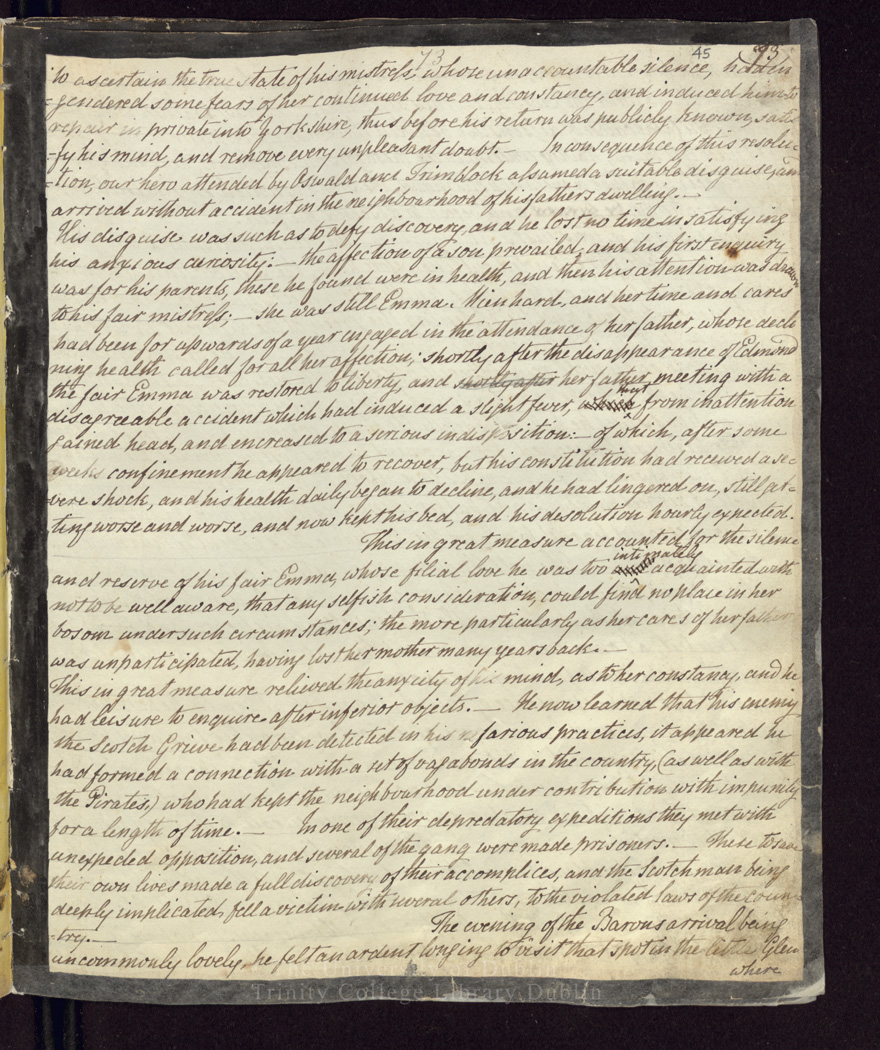 73
45
93
to ascertain the true state of his mistress, whose unaccountable silence, had in
=gendered some fears of her continued love and constancy, and induced him to
repair in private into Yorkshire, thus before his return was publicly known, satis
=fy his mind, and remove every unpleasant doubt. — In consequence of this resolu-
=tion, our hero attended by Oswald and Trimblock assumed a suitable disguise, and
arrived without accident in the neighbourhood of his fathers dwelling. —
His disguise was such as to defy discovery, and he lost no time in satisfying
his anxious curiosity: — the affection of a son prevailed, and his first enquiry
was for his parents, these he found were in health, and then his attention was drawn
to his fair mistress; — she was still Emma Mienhard, and her time and cares
had been for upwards of a year engaged in the attendance of her father, whose decli
ning health called for all her affection; shortly after the disappearance of Edmond
the fair Emma was restored to liberty, and shortly after her father, meeting with a
disagreeable accident which had induced a slight fever, that from inattention
gained head, and encreased to a serious indisposition: — of which, after some
weeks confinement he appeared to recover, but his constitution had received a se-
=vere shock, and his health daily began to decline, and he had lingered on, still get-
ting worse and worse, and now kept his bed, and his desolution hourly expected.
This in great measure accounted for the silence
and reserve of his fair Emma, whose filial love he was too intimately acquainted with
not to be well aware, that any selfish consideration, could find no place in her
bosom under such circumstances; the more particularly as her cares of her father
was unparticipated, having lost her mother many years back. —
This in great measure relieved the anxcity of his mind, as to her constancy, and he
had leisure to enquire after inferior objects. — He now learned that his enemy
the Scotch Grieve had been detected in his nefarious practices, it appeared he
had formed a connection with a set of vagabonds in the country, (as well as with
the Pirates,) who had kept the neighbourhood under contribution with impunity
for a length of time. — In one of their depredatory expeditions they met with
unexpected opposition, and several of the gang were made prisoners. — These to save
their own lives made a full discovery of their accomplices, and the Scotchman being
deeply implicated, fell a victim with several others, to the violated laws of the coun-
=try. — The evening of the Barons arrival being
uncommonly lovely, he felt an ardent longing to visit that spot in the little Glen
where
Trinity College Library Dublin